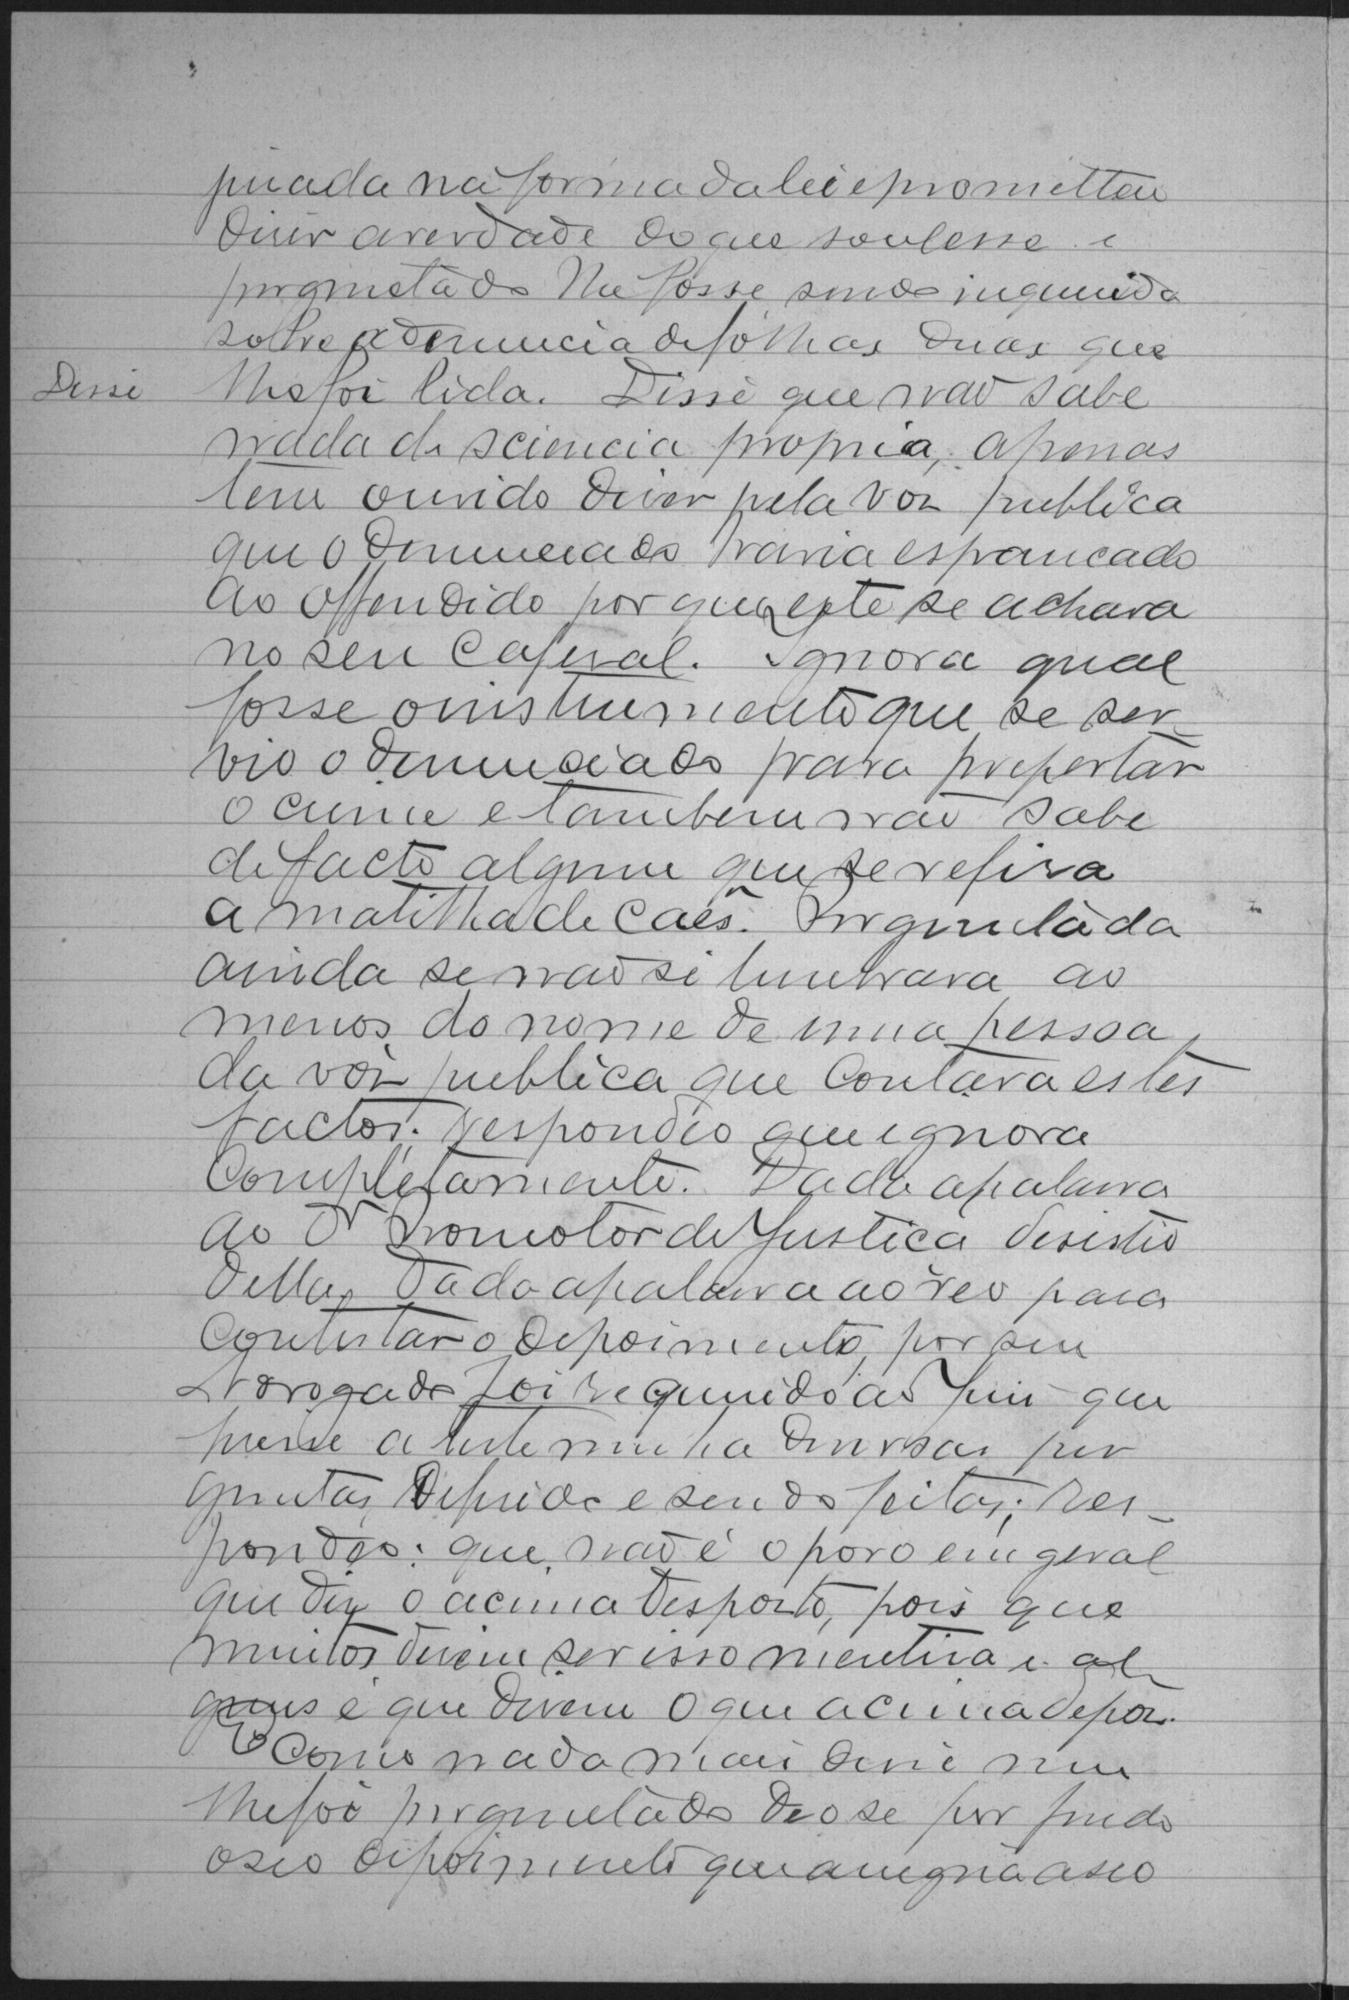 jurada na forma da lei e prometteu
dizer a verdade do que soubesse e
perguntado lhe fosse sendo inquerida
sobre a denuncia de folhas duas que
Disse lhe foi lida. Disse que não sabe
nada de sciencia propria, apenas
tem ouvido dizer pela voz publica
que o denunciado havia espancado
ao offendido por que este se achava
no seu Cafesal. Ignora qual
fosse o instrumento que se ser-
vio o denunciado para prepertar
o crime e tambem não sabe
de facto algum que se refira
a matilha de Cães. Perguntada
ainda se não si lembrava ao
menos do nome de uma pessoa,
da voz publica que Contava estes
factos; respondeo que ignora
Completamente. Dada a palavra
ao Dr Promotor de Justiça desistio
della, Dada a palavra ao reo para
Contestar o depoimento, por seu
Advogado foi requerido ao Juis que
fizesse a testeminha diversas per
guntas, deferido e sendo feitas; Res-
pondeo: que não é o povo em geral
que diz o acima desposto, pois que
muitos dizem ser isso mentira e al-
guns é que dizem o que acima depôz.
E Como nada mais disse nem
lhe foi perguntado deo se por findo
o seo depoimento que assigna a seo